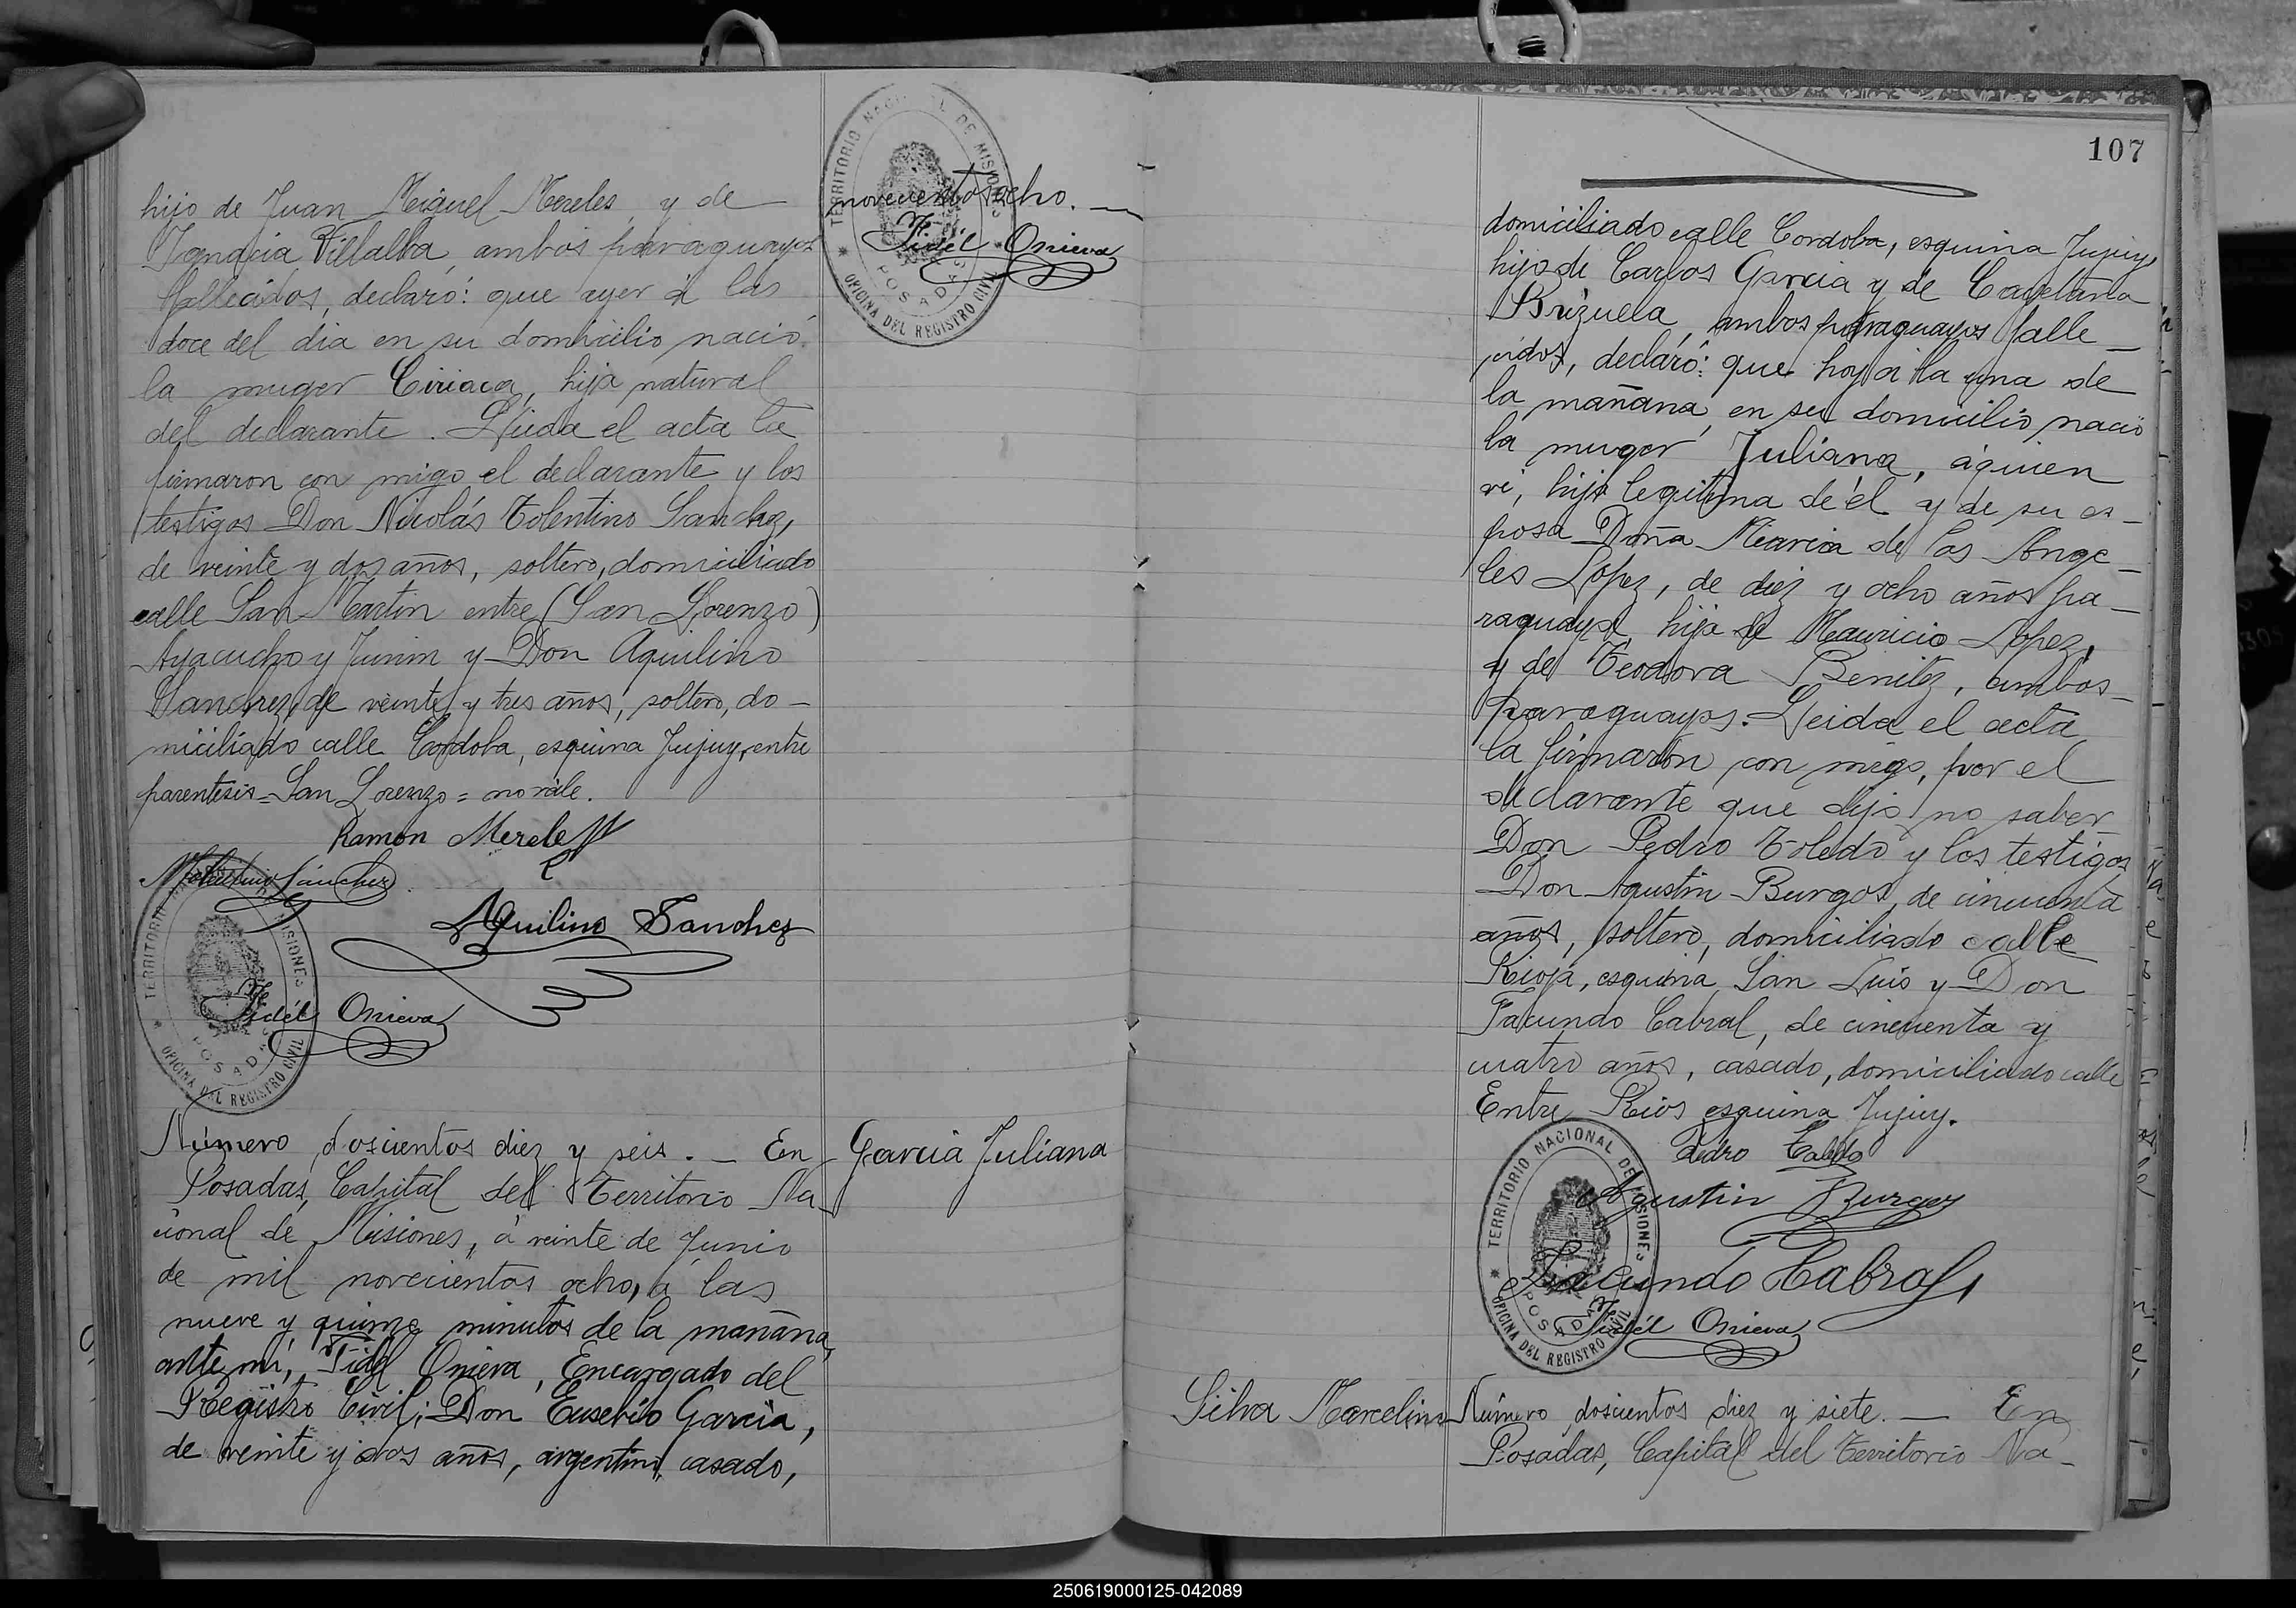 hijo de Juan Miguel Mereles, y de
Ignacia Villalba, ambos paraguayos
fallecidos, declaró: que ayer á las
doce del dia en su domicilio nació
la muger Ciriaca, hija natural
del declarante. Leida el acta la
firmaron con migo el declarante y los
testigos Don Nicolás Tolentino Sanchez,
de veinte y dos años, soltero, domiciliado
calle San Martin entre (San Lorenzo)
Ayacucho y Junin y Don Aquilino
Sanchez, de veinte y tres años, soltero, do-
miciliado calle Cordoba, esquina Jujuy, entre
parentesis = San Lorenzo = no vale.
Ramón Mereles
NTolentino Sánchez
Aquilino Sanchez
Fidél Onieva
TERRITORIO NACIONAL DE MISIONES
POSADAS
OFICINA DEL REGISTRO CIVIL
Número doscientos diez y seis. — En
Posadas, Capital del Territorio Na-
cional de Misiones, á veinte de Junio
de mil novecientos ocho, á las
nueve y quince minutos de la mañana,
ante mí, Fidel Onieva, Encargado del
Registro Civil; Don Eusebio Garcia,
de veinte y dos años, argentino, casado,
novecientos ocho. —
Fidél Onieva
TERRITORIO NACIONAL DE MISIONES
POSADAS
OFICINA DEL REGISTRO CIVIL
Garcia Juliana
107
domiciliado calle Cordoba, esquina Jujuy,
hijo de Carlos Garcia y de Cayetana
Brizuela, ambos paraguayos falle-
cidos, declaró: que hoy á la una de
la mañana, en su domicilio nació
la muger Juliana, áquien
vi, hija legitima de él y de su es-
posa Doña Maria de los Ange-
les Lopez, de diez y ocho años pa-
raguaya, hija de Mauricio Lopez,
y de Teodora Benitez, ambos
paraguayos. Leida el acta
la firmarón con migo, por el
declarante que dijo no saber
Don Pedro Toledo y los testigos
Don Agustin Burgos, de cincuenta
años, soltero, domiciliado calle
Rioja, esquina San Luis y Don
Facundo Cabral, de cincuenta y
cuatro años, casado, domiciliado calle
Entre Rios esquina Jujuy.
Pedro Toledo
Agustin Burgos
Facundo Cabral
Fidél Onieva
TERRITORIO NACIONAL DE MISIONES
POSADAS
OFICINA DEL REGISTRO CIVIL
Silva Marcelino
Número doscientos diez y siete. — En
Posadas, Capital del Territorio Na-
250619000125-042089